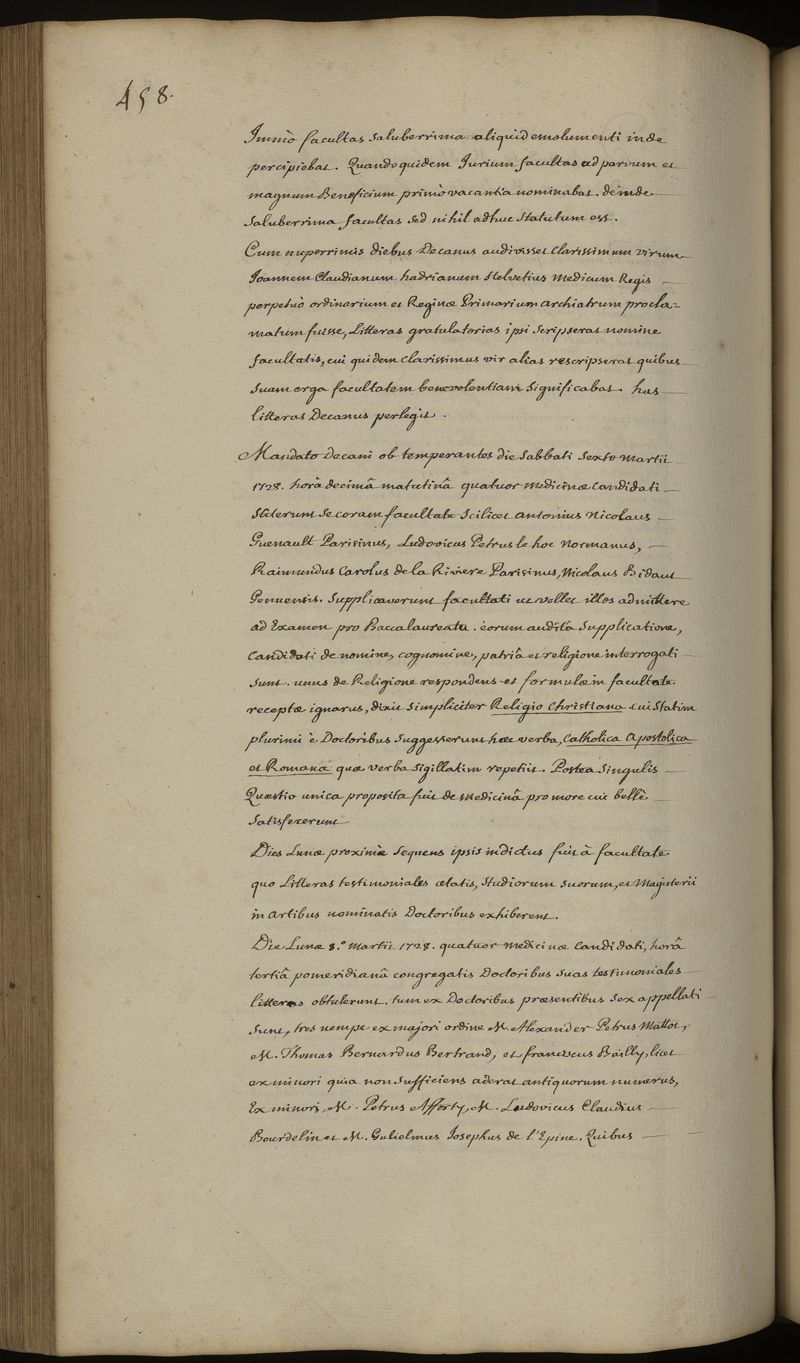 458.
Immò facultas Saluberrima aliquid emolumenti inde
percipiebat. Quandoquidem Jurium facultas ad parvum et
magnum Beneficium primò vacantia nominabat. deinde
Saluberrima facultas sed nihil adhuc Statutum est.
Cum nuperrimis diebus Decanus audivisset Clarissimum virum
Joannem Claudianum hadrianum Helvetius Medicum Regis
perpetuò ordinarium et Reginæ Primarium archiatrum procla=
matum fuisse, Litteras gratulatorias ipsi Scripserat nomine
facultatis, cui quidem Clarissimus vir alias rescripserat quibus
Suam erga facultatem benevolentiam Significabat. has
litteras Decanus perlegit.
Mandato Decani obtemperantes die Sabbati Sexto Martii
1728. horâ decimâ matutinâ quatuor Medicinæ Candidati
Stiterunt Se coram facultate Scilicet antonius Nicolaus
Guenault Parisinus, Ludovicus Petrus le hoc Normanus,
Raimundus Carolus de la Riviere Parisinus, Nicolaus Bidaut
Genuensis. Supplicaverunt facultati ut vellet illos admittere
ad Examen pro Baccalaureatu. eorum auditâ Supplicatione,
Candidati de nomine, cognomine, patriâ et religione interrogati
Sunt. unus de Religione respondens et formulæ in facultate
receptæ ignarus, dixit Simpliciter Religio Christiana cui Statim
plurimi è Doctoribus Suggesserunt hæc verba, Catholica Apostolica
et Romana quæ verba Sigillatim repetiit. Postea Singulis
Quæstio unica proposita fuit de Medicinâ pro more cui bellè
Satisfecerunt
Dies Lunæ proximè Sequens ipsis indictus fuit à facultate
quo Litteras testimoniales ætatis, Studiorum Suorum, et Magisterii
in Artibus nominatis Doctoribus exhiberent.
Die Lunæ 8.º Martii 1728. quatuor Medicinæ Candidati, horâ
tertiâ pomeridianâ congregatis Doctoribus Suas testimoniales
litteras obtulerunt. tum ex Doctoribus præsentibus Sex appellati
Sunt, tres nempe ex majori ordine M. Alexander Petrus Mattot,
M. Thomas Bernardus Bertrand, et franciscus Bailly, licet
ex minori quia non Sufficiens aderat antiquorum numerus,
Ex minori, M. Petrus Afforty, M. Ludovicus Claudius
Bourdelin et M. Gulielmus Josephus de l'Epine. Quibus